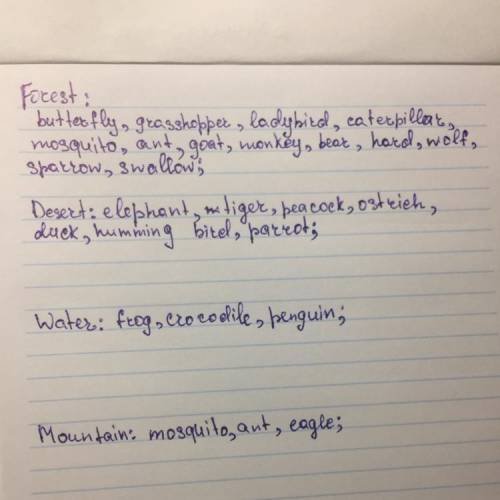 Forest:
butterfly, grasshopper, ladybird, caterpillar,
mosquito, ant, goat, monkey, bear, hard, wolf,
sparrow, swallow;
Desert: elephant, tiger, peacock, ostrich,
duck, humming bird, parrot;
Water: frog, crocodile, penguin;
Mountain: mosquito, ant, eagle;